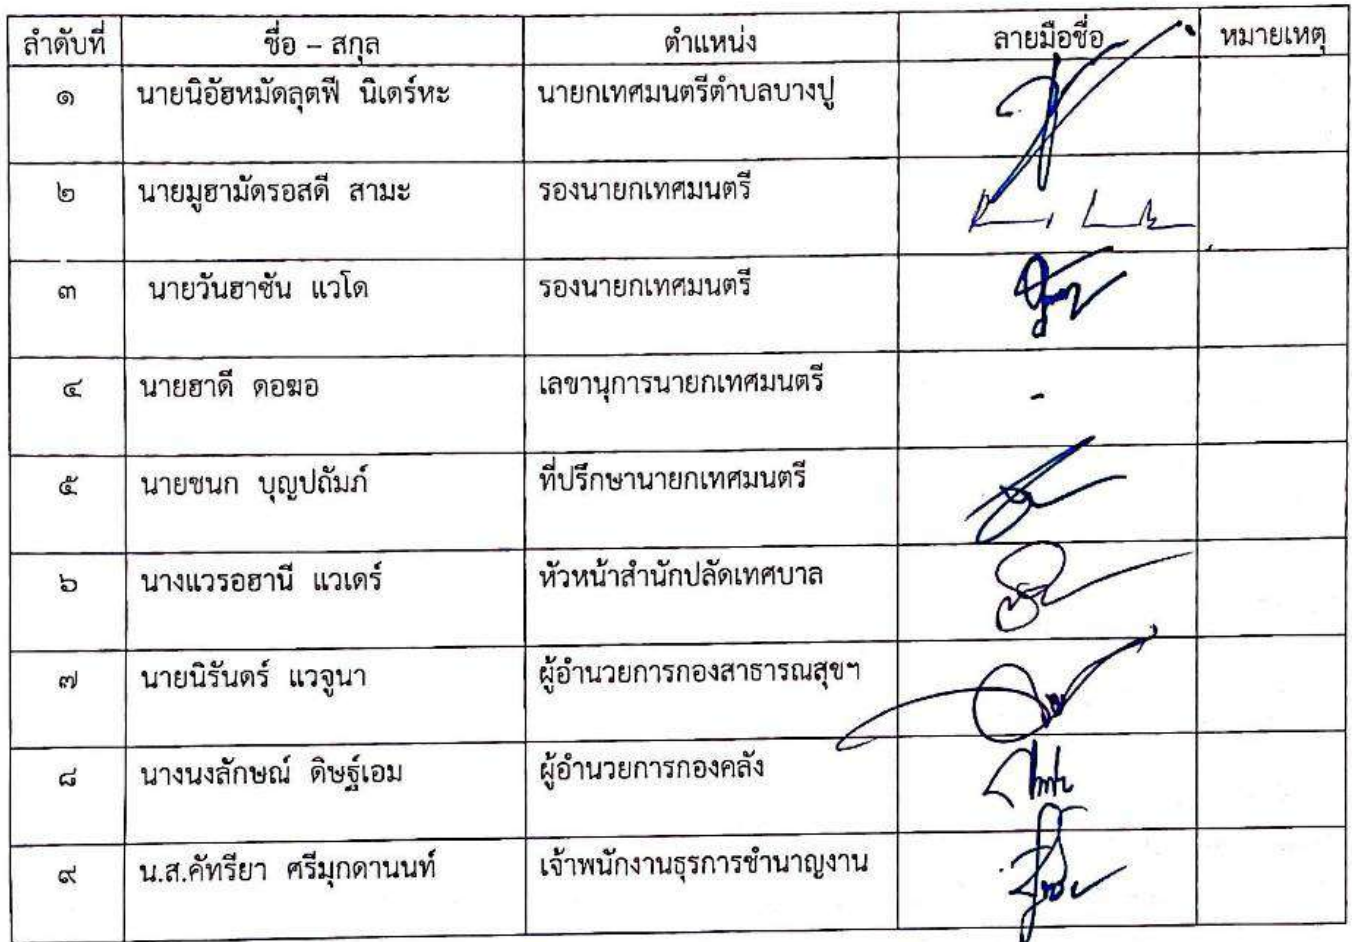 ลำดับที่ ชื่อ – สกุล ตำแหน่ง ลายมือชื่อ หมายเหตุ
๑ นายนิอัฮหมัดลุตฟี นิเดร์หะ นายกเทศมนตรีตำบลบางปู
๒ นายมูฮามัดรอสดี สามะ รองนายกเทศมนตรี
๓ นายวันฮาซัน แวโด รองนายกเทศมนตรี
๔ นายฮาดี ดอฆอ เลขานุการนายกเทศมนตรี -
๕ นายชนก บุญปถัมภ์ ที่ปรึกษานายกเทศมนตรี
๖ นางแวรอฮานี แวเดร์ หัวหน้าสำนักปลัดเทศบาล
๗ นายนิรันดร์ แวจูนา ผู้อำนวยการกองสาธารณสุขฯ
๘ นางนงลักษณ์ ดิษฐ์เอม ผู้อำนวยการกองคลัง
๙ น.ส.คัทรียา ศรีมุกดานนท์ เจ้าพนักงานธุรการชำนาญงาน